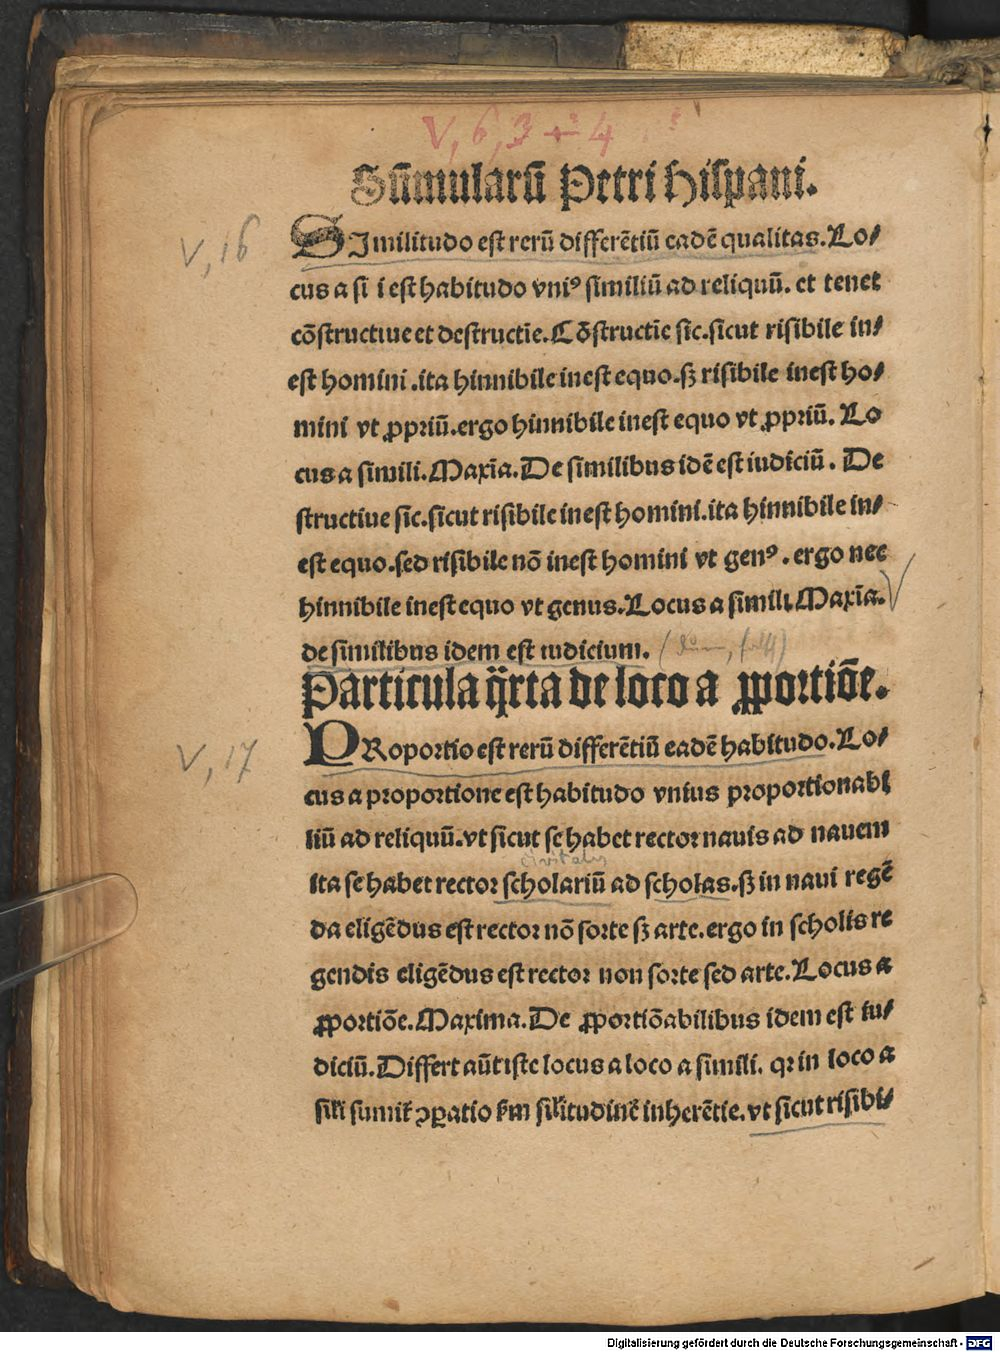 V, 6, 3 + 4
Sūmularū Petri Hispani.
V, 16
SImilitudo est rerū differētiū eadē qualitas. Lo/
cus a si i est habitudo vniꝰ similiū ad reliquū. et tenet
cōstructiue et destructīe. Cōstructīe sic. sicut risibile in/
est homini. ita hinnibile inest equo. sꝫ risibile inest ho/
mini vt ꝓpriū. ergo hinnibile inest equo vt ꝓpriū. Lo
cus a simili. Maxīa. De similibus idē est iudiciū. De
structiue sic. sicut risibile inest homini. ita hinnibile in/
est equo. sed risibile nō inest homini vt genꝰ. ergo nec
hinnibile inest equo vt genus. Locus a simili. Maxīa.
de similibus idem est iudicium.
Particula q̈rta de loco a ꝓportiōe.
V, 17
PRoportio est rerū differētiū eadē habitudo. Lo/
cus a proportione est habitudo vnius proportionabi
liū ad reliquū. vt sicut se habet rector nauis ad nauem
civitatis
ita se habet rector scholariū ad scholas. sꝫ in naui regē
da eligēdus est rector nō sorte sꝫ arte. ergo in scholis re
gendis eligēdus est rector non sorte sed arte. Locus a
ꝓportiōe. Maxima. De ꝓportiōabilibus idem est iu/
diciū. Differt aūt iste locus a loco a simili. qꝛ in loco a
sil'i sumit̄ ↄꝑatio ẜm sil'itudinē inherētie. vt sicut risibi/
Digitalisierung gefördert durch die Deutsche Forschungsgemeinschaft - DFG